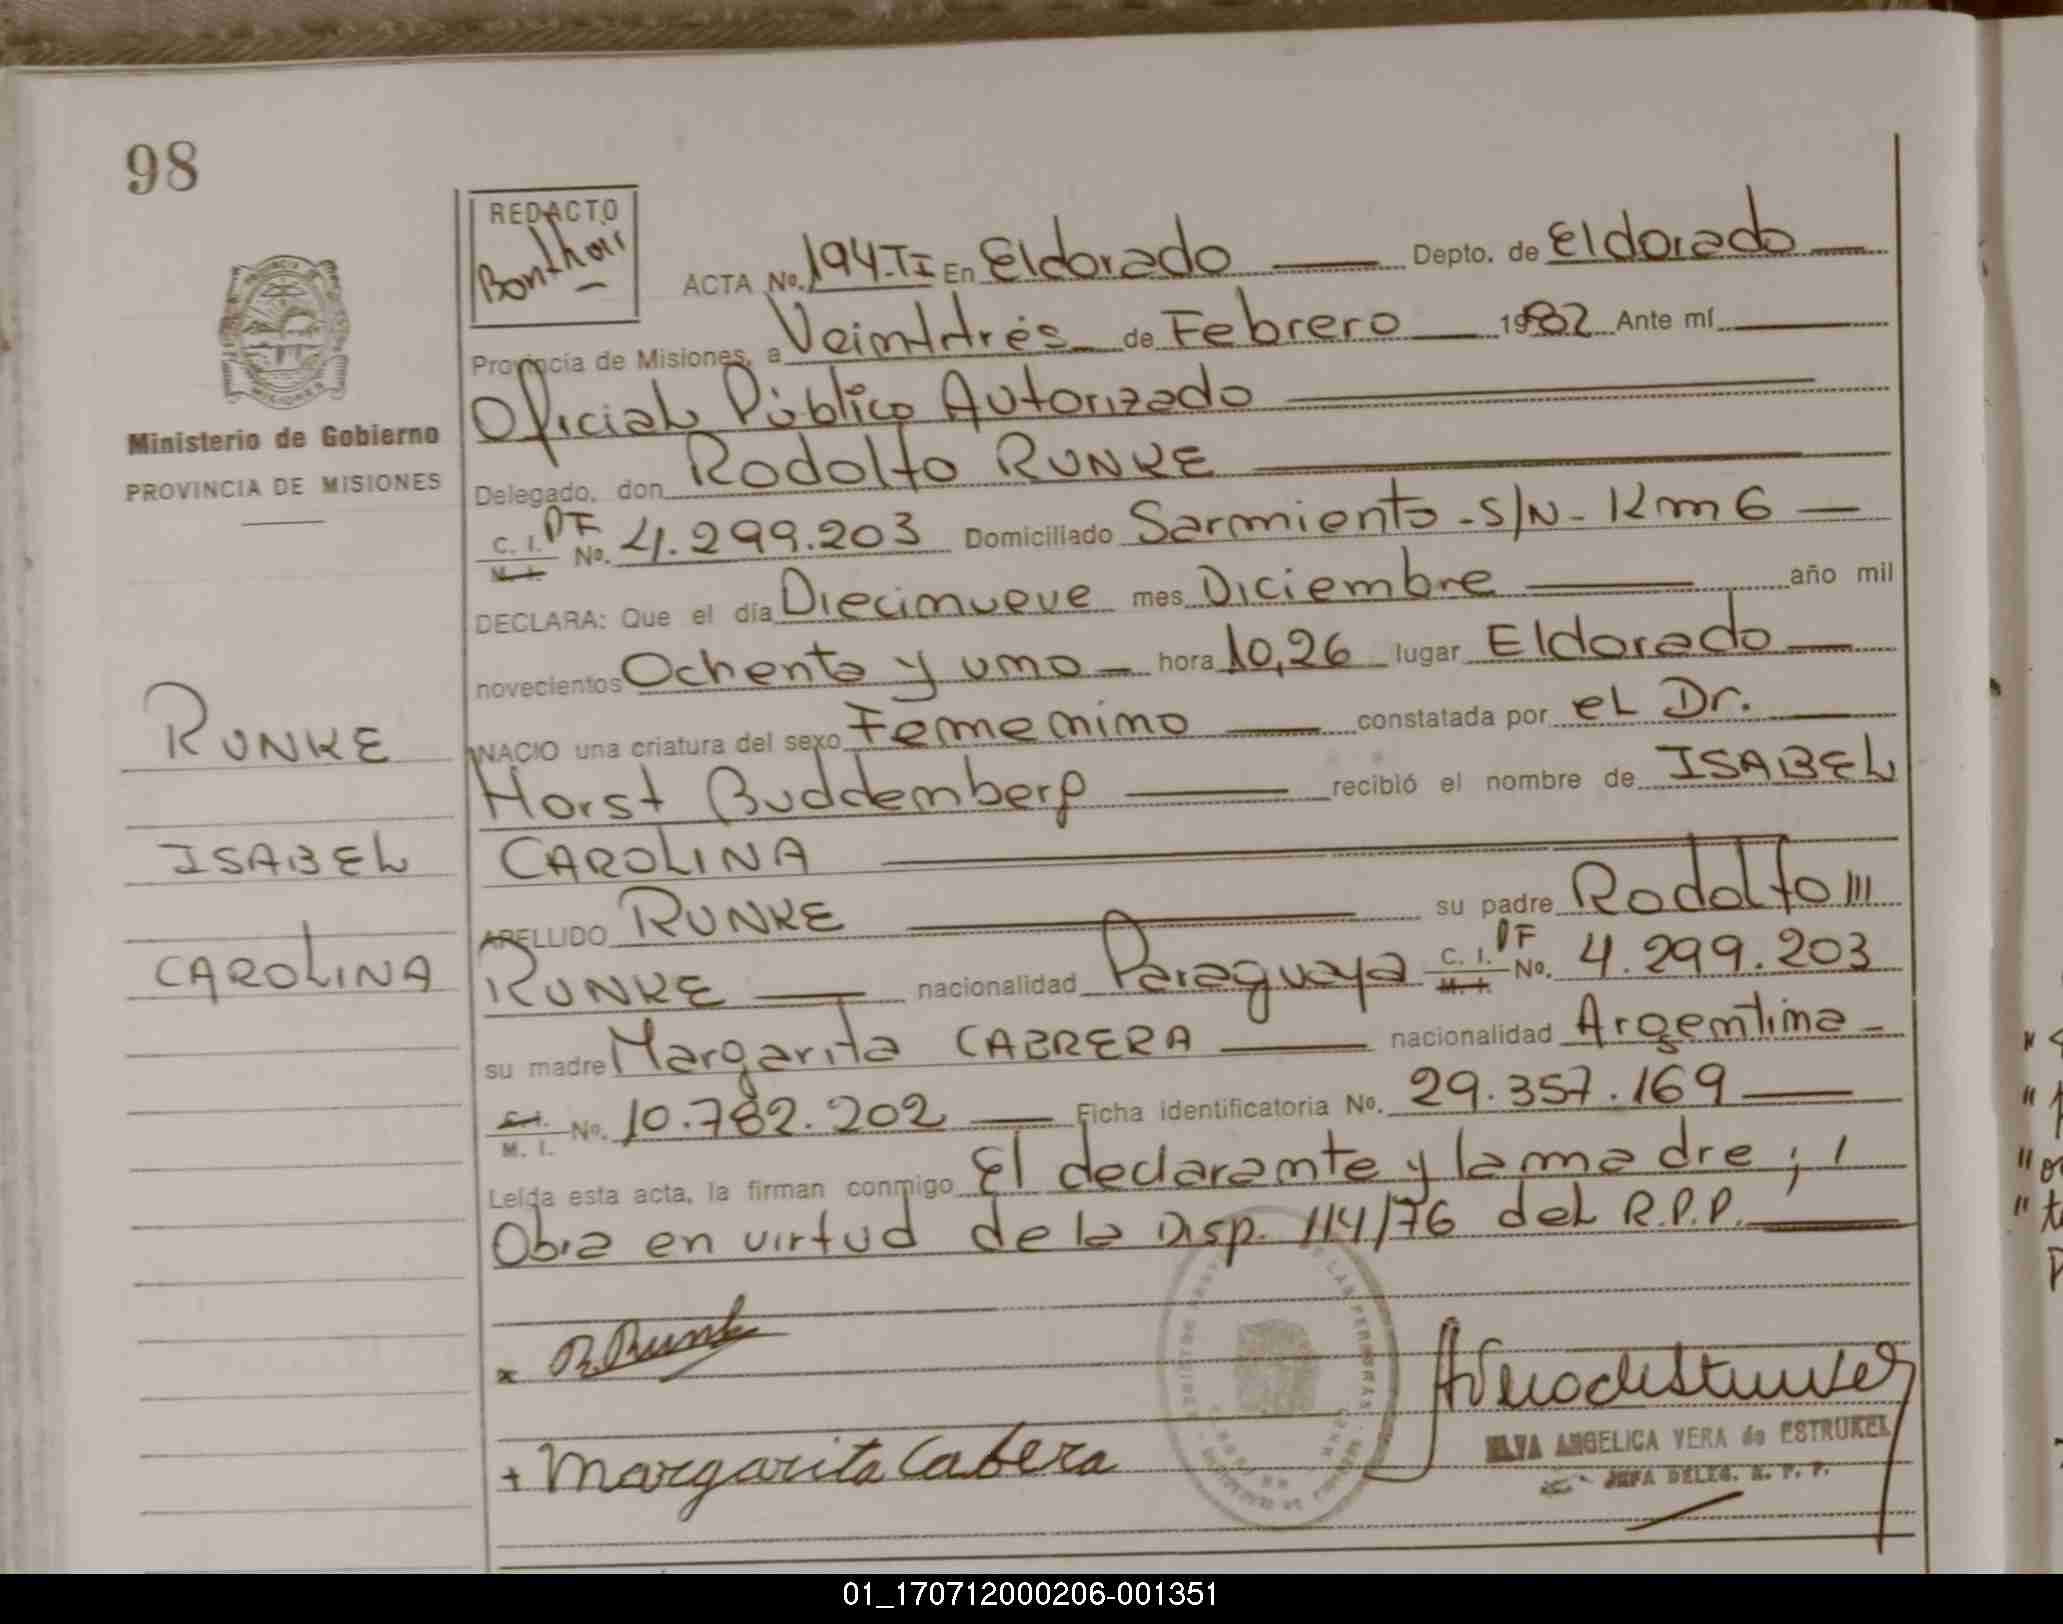 98
REDACTO
ACTA No. 194-TI En Eldorado Depto. de Eldorado
Provincia de Misiones, a Veintitrés de Febrero 1982 Ante mí
Oficial Público Autorizado
Ministerio de Gobierno
PROVINCIA DE MISIONES
Delegado, don Rodolfo RUNKE
C. I. M. I. PF No. 4.299.203 Domiciliado Sarmiento - S/N - Km 6
DECLARA: Que el día Diecinueve mes Diciembre año mil
novecientos Ochenta y uno hora 10,26 lugar Eldorado
NACIO una criatura del sexo Femenino constatada por el Dr.
Horst Buddemberg recibió el nombre de ISABEL
CAROLINA
RUNKE
ISABEL
CAROLINA
APELLIDO RUNKE su padre Rodolfo
RUNKE nacionalidad Paraguaya C. I. M. I. PF No. 4.299.203
su madre Margarita CABRERA nacionalidad Argentina
C. I. M. I. No. 10.782.202 Ficha identificatoria No. 29.357.169
Leída esta acta, la firman conmigo El declarante y la madre ;
Obra en virtud de la Disp. 114/76 del R.P.P.
x R. Runke
+ Margarita Cabrera
ELVA ANGELICA VERA de ESTRUKEL
JEFA DELEG. R. P. P.
01_170712000206-001351